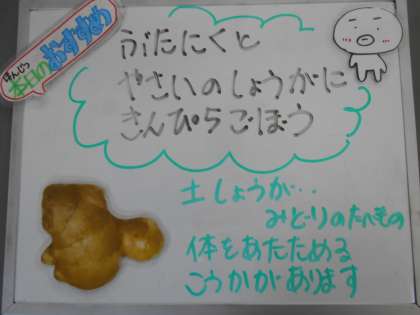 ほんじつ
本日の
おすすめ
ぶたにくと
やさいのしょうがに
きんぴらごぼう
土しょうが・・
みどりのたべもの
体をあたためる
こうかがあります